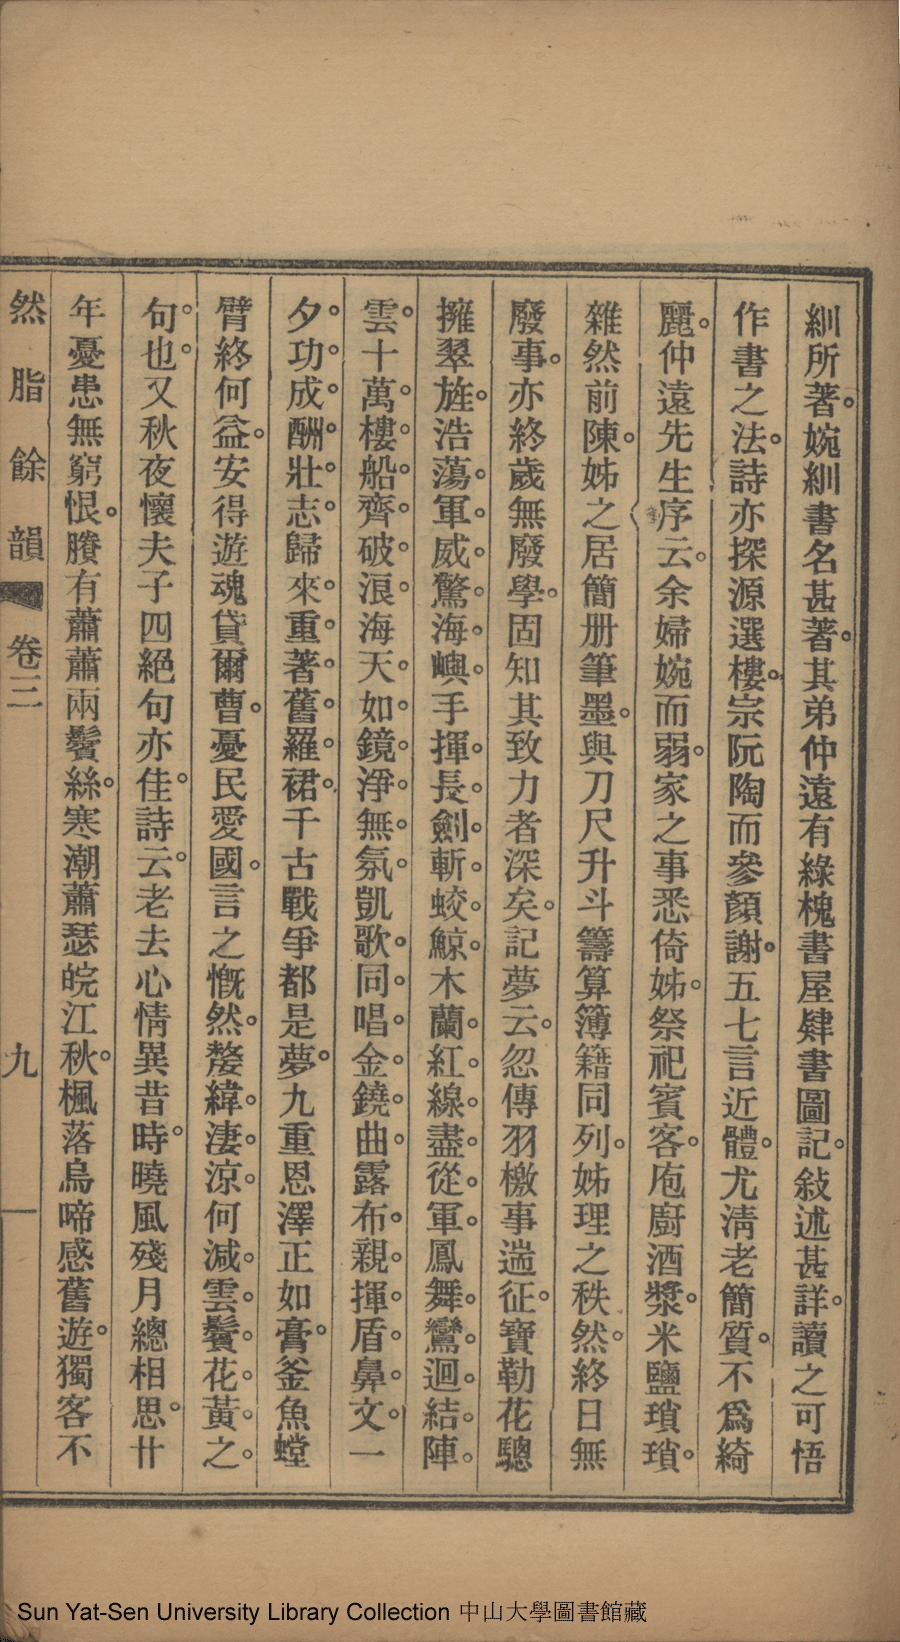 紃所著婉紃書名甚著其弟仲遠有綠槐書屋肄書圖記敍述甚詳讀之可悟
作書之法詩亦探源選樓宗阮陶而參顏謝五七言近體尤淸老簡質不爲綺
麗仲遠先生序云余婦婉而弱家之事悉倚姊祭祀賓客庖廚酒漿米鹽瑣瑣
雜然前陳姊之居簡册筆墨與刀尺升斗籌算簿籍同列姊理之秩然終日無
廢事亦終歲無廢學固知其致力者深矣記夢云忽傳羽檄事遄征寶勒花驄
擁翠旌浩蕩軍威驚海嶼手揮長劍斬蛟鯨木蘭紅線盡從軍鳳舞鸞迴結陣
雲十萬樓船齊破浪海天如鏡淨無氛凱歌同唱金鐃曲露布親揮盾鼻文一
夕功成酬壯志歸來重著舊羅裙千古戰爭都是夢九重恩澤正如膏釜魚螳
臂終何益安得遊魂貸爾曹憂民愛國言之慨然嫠緯淒涼何減雲鬟花黃之
句也又秋夜懷夫子四絕句亦佳詩云老去心情異昔時曉風殘月總相思廿
年憂患無窮恨賸有蕭蕭兩鬢絲寒潮蕭瑟皖江秋楓落烏啼感舊遊獨客不
然脂餘韻 卷三 九
Sun Yat-Sen University Library Collection 中山大學圖書館藏